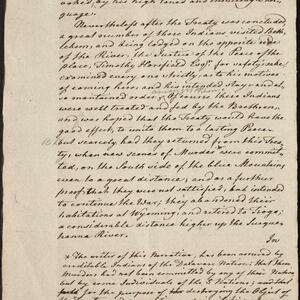 guage.
Nevertheless after the Treaty was concluded
a great number of these Indians visited Beth-
lehem, and being lodged on the opposite side
of the River, the Justice of the Peace of the
place, Timothy Horsfield Esqr. for safety sake,
examined every one strictly, as to his motives
of coming here, and his intended stay, and al-
so maintained order. These Indians
were well treated and fed by the Brethren,
and was hoped that the Treaty would have the
good effect, to unite them to a lasting Peace
but scarcely had they returned from this Trea-
ty, when new scenes of Murder were committ-
ed, on the South side of the blue Mountains
even to a great distance; and as a further
proof that they were not satisfied, and intended
to continue the War; they abandoned their
habitations at Wyoming, and retired to Tioga;
a considerable distance higher up the Susque-
hanna River.
In
The writer of this Narrative, has been assured by
creditable Indians of the Delaware Nation; that these
Murders had not been committed by any of their Nation
but by some Individuals of the 6 Nations,
for the purpose of destroying the Object of